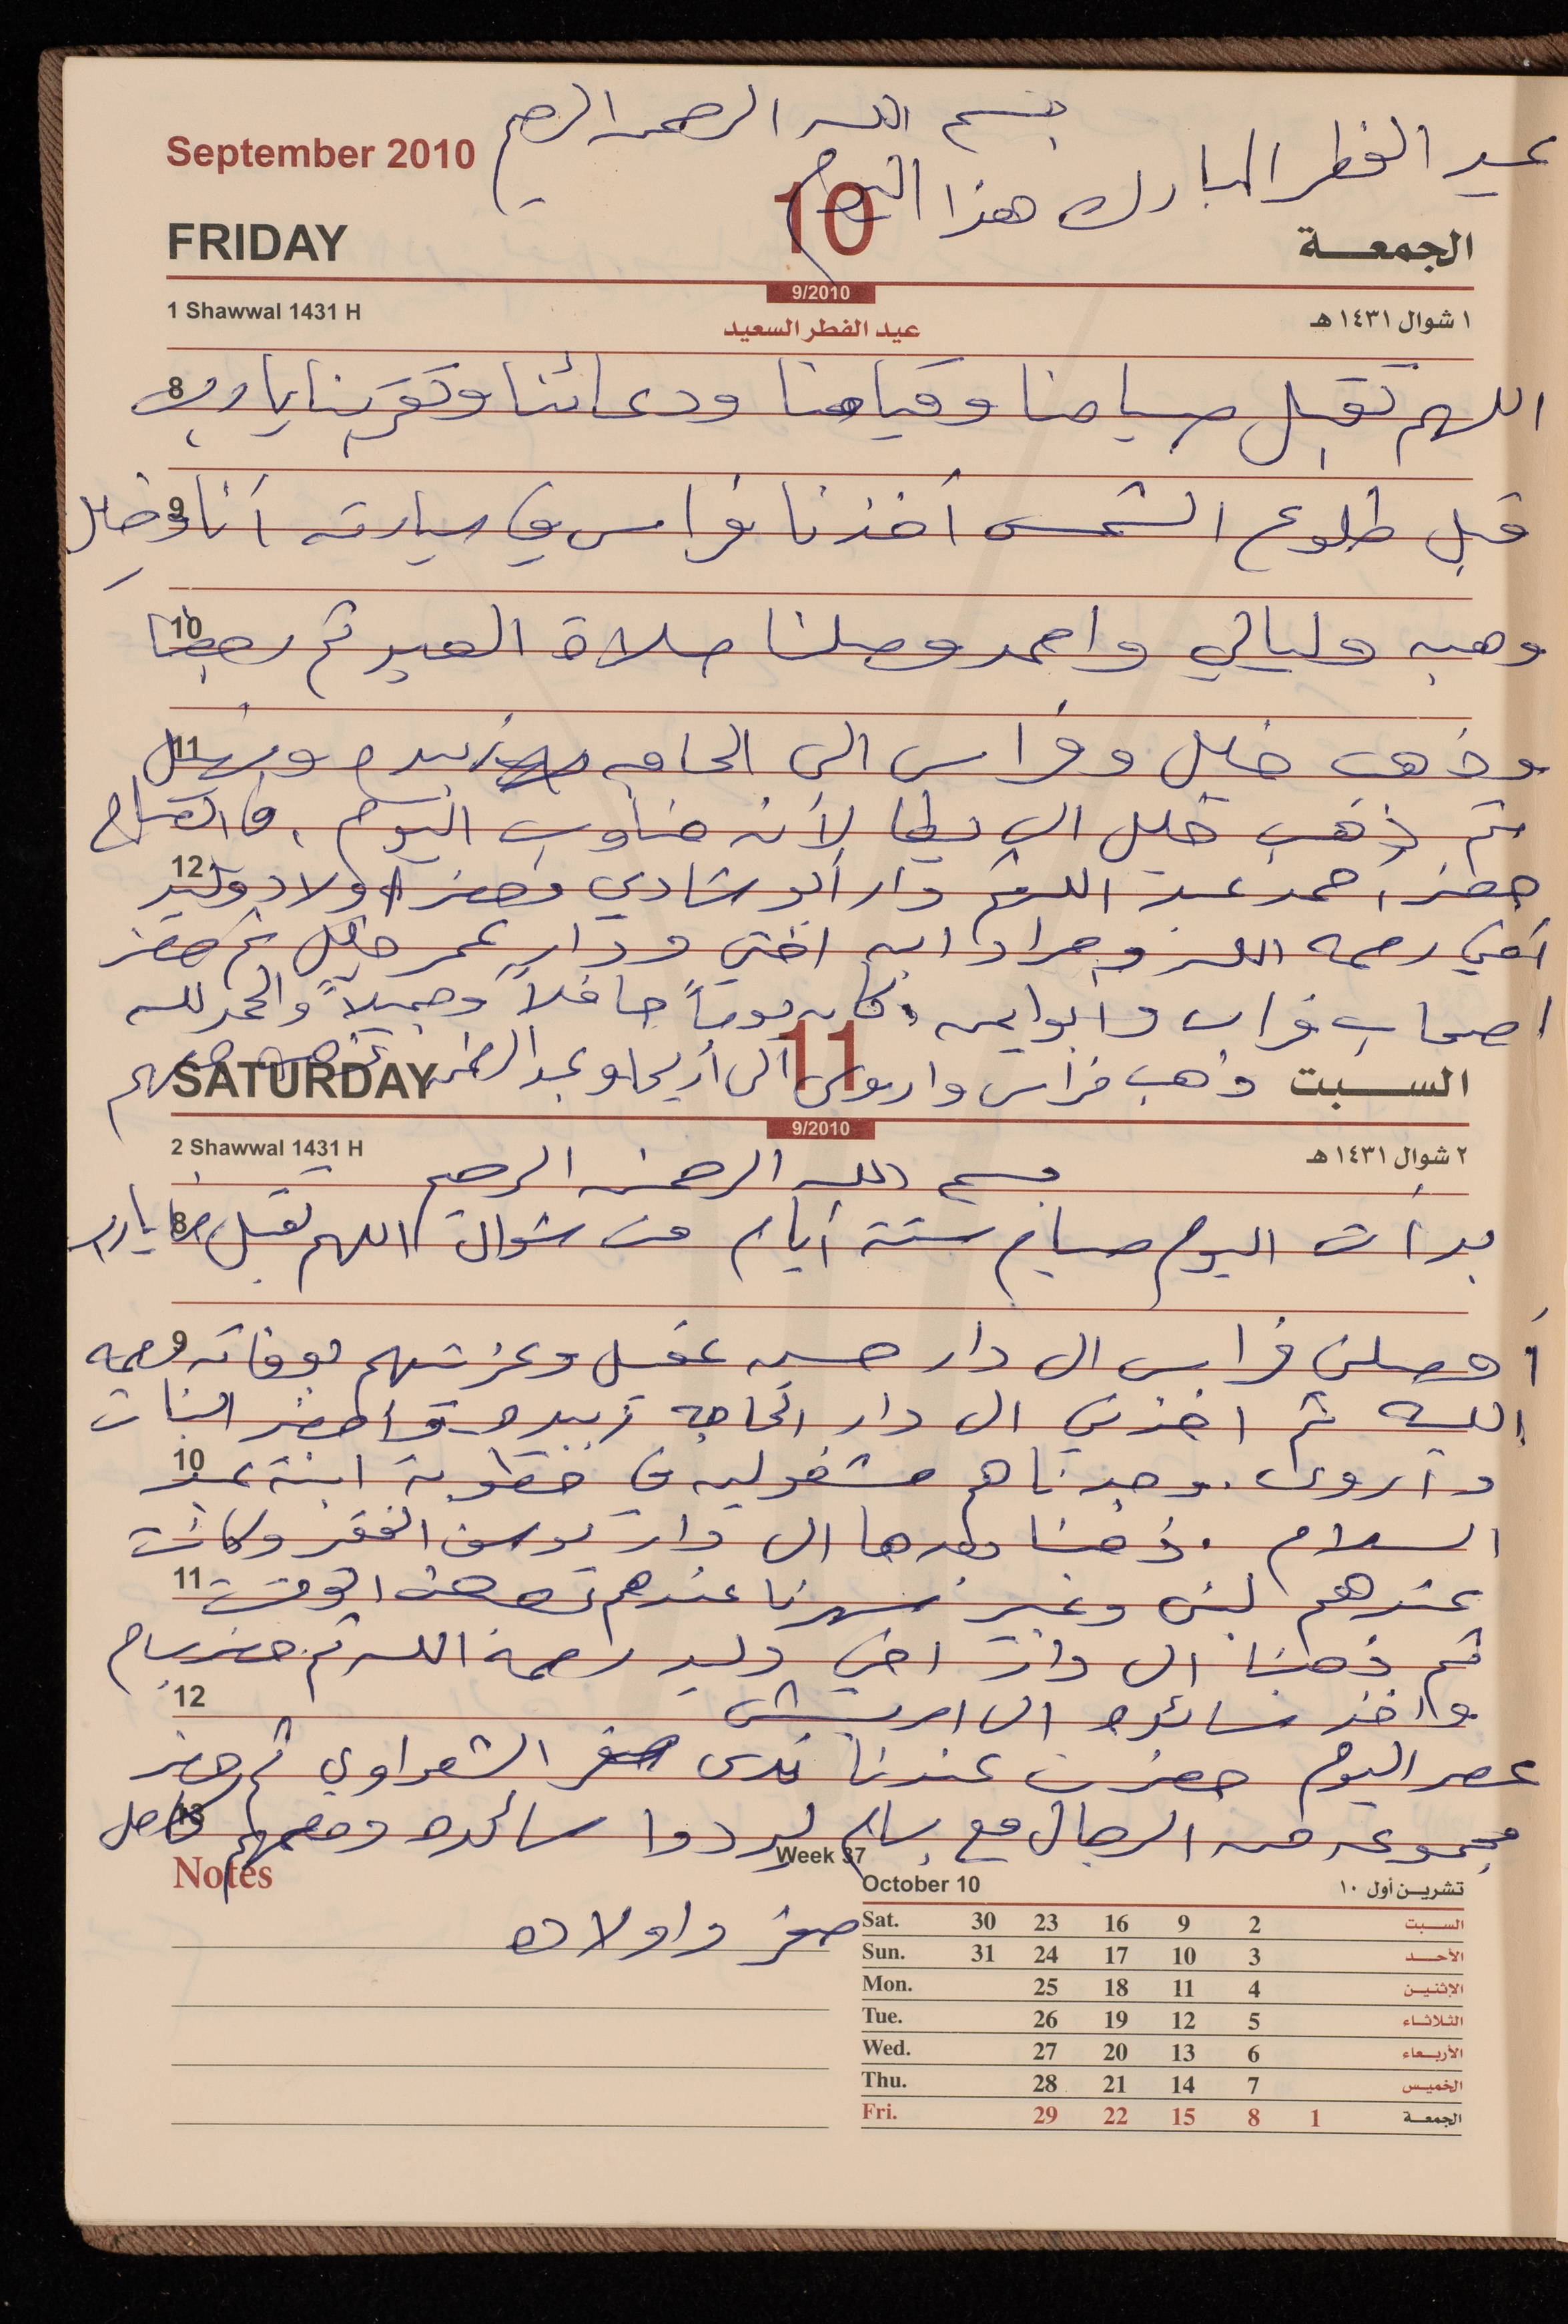 بسم الله الرحمن الرحيم
عيد الفطر المبارك هذا اليوم
September 2010
10
FRIDAY
الجمعـــة
9/2010
1 Shawwal 1431 H
عيد الفطر السعيد
١ شوال ١٤٣١ هـ
8 اللهم تقبل صيامنا وقيامنا ودعائنا وتقربنا يا رب
9 قبل طلوع الشمس أخذنا فراس في سيارته أنا وخليل
10 وهبه وليالي واحمد وصلنا صلاة العيد ثم رجعنا
11 وذهب خليل وفراس الى الحاجه زبيده
ثم ذهب خليل الى لأنه مناوب اليوم .
12 حضر أحمد عبد دار أبو شادي وحضر اولاد وليد
أخي رحمه الله ومراد ابن اختي ودار عمر خليل ثم حضر
اصحاب فراس وكان يوماً حافلاً وجميلاً والحمد لله
11
SATURDAY
السـبت
ذهب فراس واروى الى أريحا معهم
9/2010
2 Shawwal 1431 H
٢ شوال ١٤٣١ هـ
بسم الله الرحمن الرحيم
8 بدأت اليوم صيام ستة أيام من شوال اللهم تقبل يا رب
9 أوصلني فراس الى دار حسن عقل وعزيتهم بوفاته رحمه
الله ثم اخذني الى دار الحاجه زبيده البنات
10 وأروى . وجدناهم مشغولين في خطوبة ابنة عبد
السلام . ذهبنا بعدها الى دار يوسف وكانت
11 عندهم لبنى وعبير سهرنا عندهم بعض الوقت
ثم ذهبنا الى دار اخي وليد رحمة الله ثم حضر بسام
12 واخذ سائده الى
عصر اليوم حضرت عندنا ندى الشعراوي ثم حضر
13 مجموعه من الرجال مع بسام ليردوا سائده ومعهم
صقر واولاده
Week 37
Notes
October 10
تشريـن أول ١٠
Sat. 30 23 16 9 2 السـبت
Sun. 31 24 17 10 3 الأحـد
Mon. 25 18 11 4 الإثنـين
Tue. 26 19 12 5 الثـلاثـاء
Wed. 27 20 13 6 الأربـعاء
Thu. 28 21 14 7 الخميـس
Fri. 29 22 15 8 1 الجمعـة